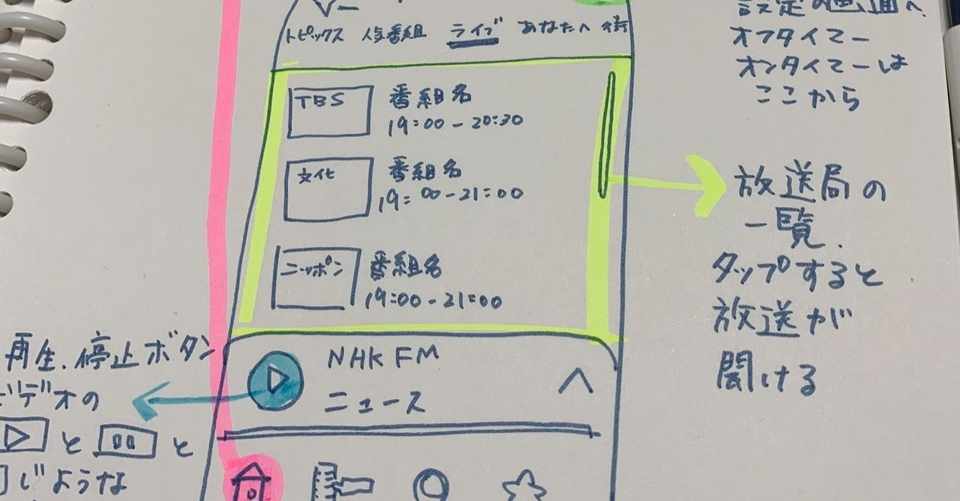 トピックス 人気番組 ライブ あなたへ 街
TBS
番組名
19:00-20:30
文化
番組名
19:00-21:00
ニッポン
番組名
19:00-21:00
NHK FM
ニュース
設定の画面へ.
オフタイマー
オンタイマーは
ここから
放送局の
一覧.
タップすると
放送が
聞ける
再生.停止ボタン
ビデオの
と と
同じような